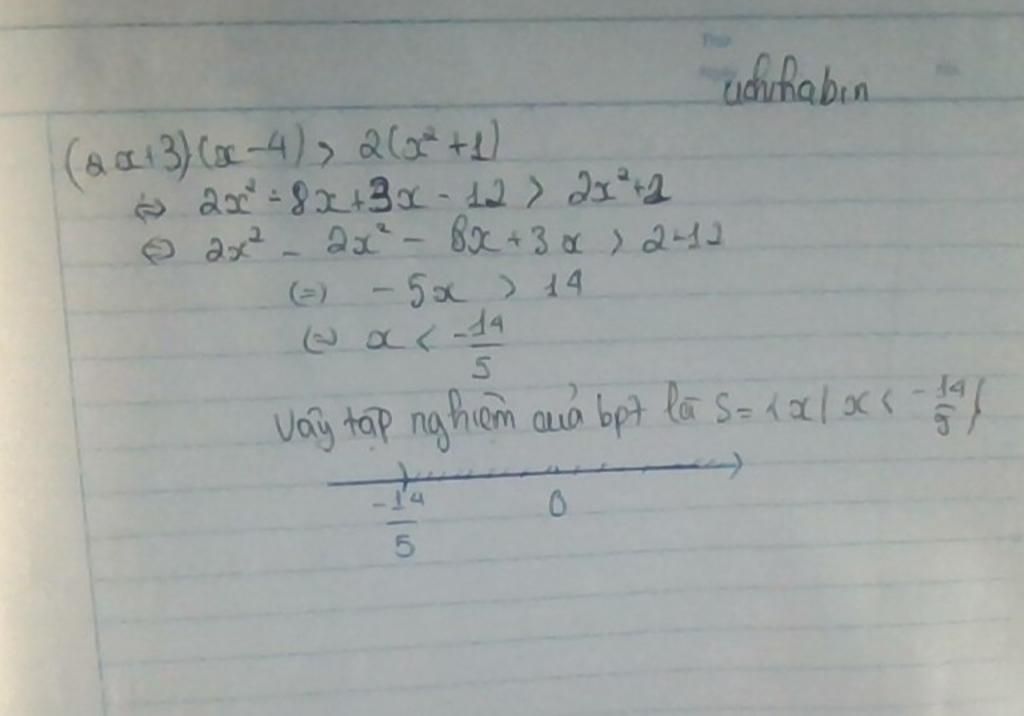 uchihabin
(2x+3)(x-4) > 2(x²+1)
⇔ 2x² - 8x + 3x - 12 > 2x² + 2
⇔ 2x² - 2x² - 8x + 3x > 2+12
(=) - 5x > 14
⇔ x < -14/5
Vậy tập nghiệm của bpt là S = {x | x < -14/5}
-14/5 0